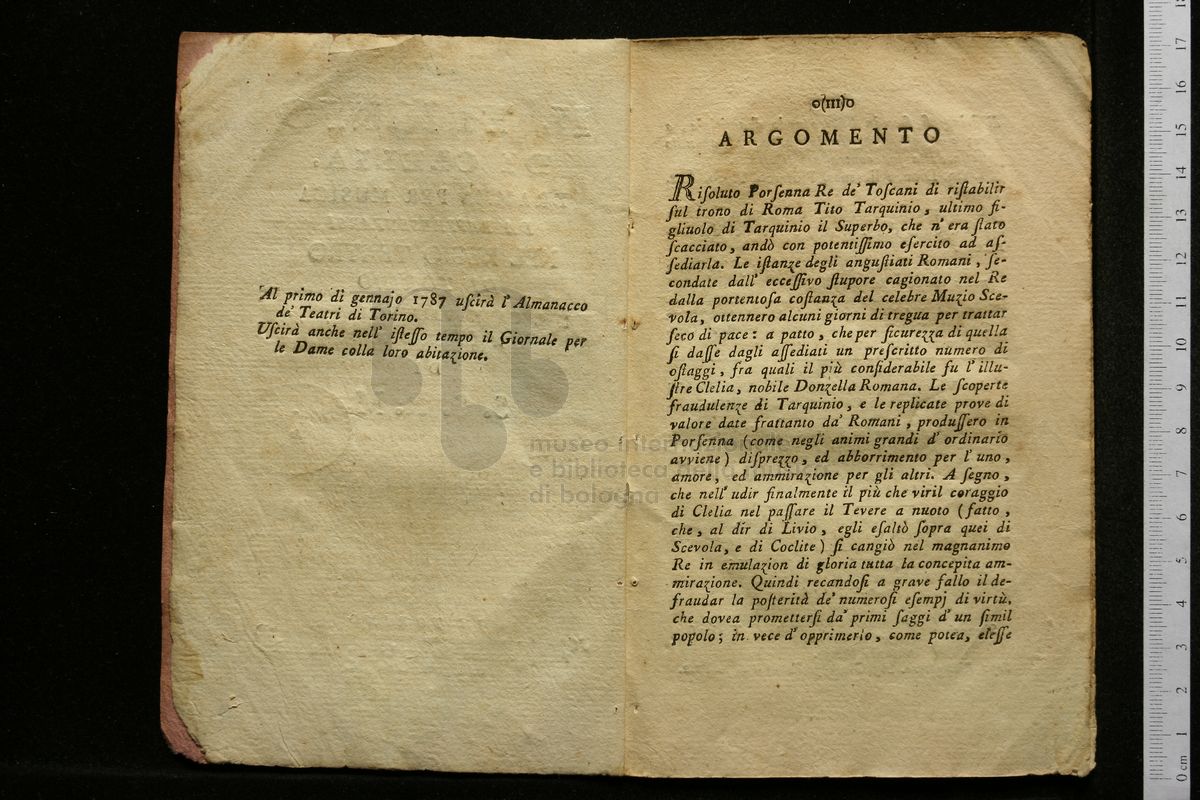 Al primo di gennajo 1787 uſcirà l' Almanacco
de' Teatri di Torino.
Uſcirà anche nell' iſteſſo tempo il Giornale per
le Dame colla loro abitazione.
o(III)o
ARGOMENTO
Riſoluto Porſenna Re de' Toſcani di riſtabilir
ſul trono di Roma Tito Tarquinio, ultimo fi-
gliuolo di Tarquinio il Superbo, che n' era ſtato
ſcacciato, andò con potentiſſimo eſercito ad aſ-
ſediarla. Le iſtanze degli anguſtiati Romani, ſe-
condate dall' ecceſſivo ſtupore cagionato nel Re
dalla portentoſa coſtanza del celebre Muzio Sce-
vola, ottennero alcuni giorni di tregua per trattar
ſeco di pace: a patto, che per ſicurezza di quella
ſi daſſe dagli aſſediati un preſcritto numero di
oſtaggi, fra quali il più conſiderabile fu l' illu-
ſtre Clelia, nobile Donzella Romana. Le ſcoperte
fraudulenze di Tarquinio, e le replicate prove di
valore date frattanto da' Romani, produſſero in
Porſenna (come negli animi grandi d' ordinario
avviene) diſprezzo, ed abborrimento per l' uno,
amore, ed ammirazione per gli altri. A ſegno,
che nell' udir finalmente il più che viril coraggio
di Clelia nel paſſare il Tevere a nuoto (fatto,
che, al dir di Livio, egli eſaltò ſopra quei di
Scevola, e di Coclite) ſi cangiò nel magnanimo
Re in emulazion di gloria tutta la concepita am-
mirazione. Quindi recandoſi a grave fallo il de-
fraudar la poſterità de' numeroſi eſempj di virtù,
che dovea prometterſi da' primi ſaggi d' un ſimil
popolo; in vece d' opprimerlo, come potea, eleſſe
museo inter
e biblioteca della
di bologna
0 cm 1 2 3 4 5 6 7 8 9 10 11 12 13 14 15 16 17 18